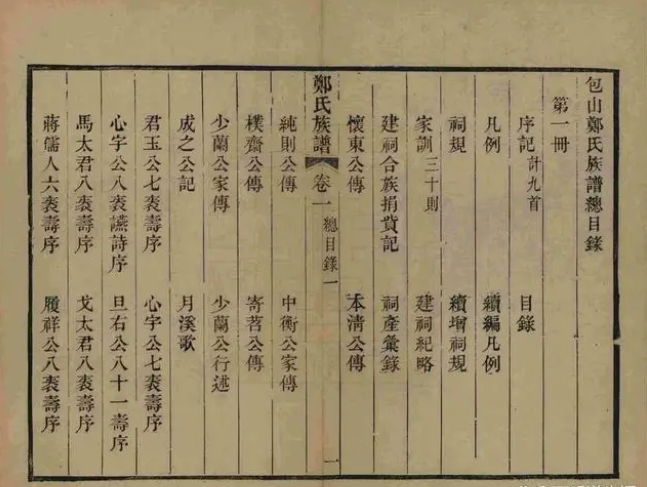 包山鄭氏族譜總目錄
第一冊
序記計九首 目錄
凡例 續編凡例
祠規 續增祠規
家訓三十則 建祠紀略
建祠合族捐貲記 祠產彙錄
懷東公傳 本淸公傳
鄭氏族譜 卷一 總目錄一 一
純則公傳 中衡公家傳
樸齋公傳 寄茗公傳
少蘭公家傳 少蘭公行述
成之公記 月溪歌
君玉公七袠壽序 心字公七袠壽序
心字公八袠讌詩序 旦右公八十一壽序
馬太君八袠壽序 戈太君八袠壽序
蔣孺人六袠壽序 履祥公八袠壽序